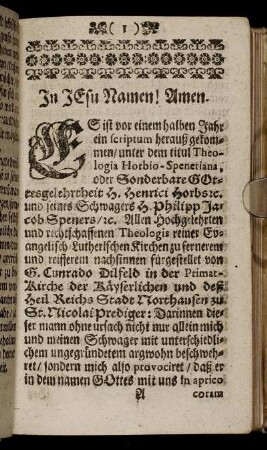 ( 1 )
In JEsu Namen! Amen.
ES ist vor einem halben Jahr
ein scriptum herauß gekom-
men/ unter dem titul Theo-
logia Horbio-Speneriana,
oder Sonderbare GOt-
tesgelehrtheit H. Henrici Horbs ꝛc.
und seines Schwagers H. Philipp Ja-
cob Speners/ ꝛc. Allen Hochgelehrten
und rechtschaffenen Theologis reiner Ev-
angelisch-Lutherischen Kirchen zu fernerem
und reifferem nachsinnen fürgestellet von
G. Cunrado Dilfeld in der Primat-
Kirche der Käyserlichen und deß
Heil Reichs Stadt Northausen zu
St. Nicolai Prediger: Darinnen die-
ser mann ohne ursach nicht nur allein mich
und meinen Schwager mit unterschiedli-
chem ungegründetem argwohn beschweh-
ret/ sondern mich also provociret/ daß er
in dem namen GOttes mit uns in aprico
A coram